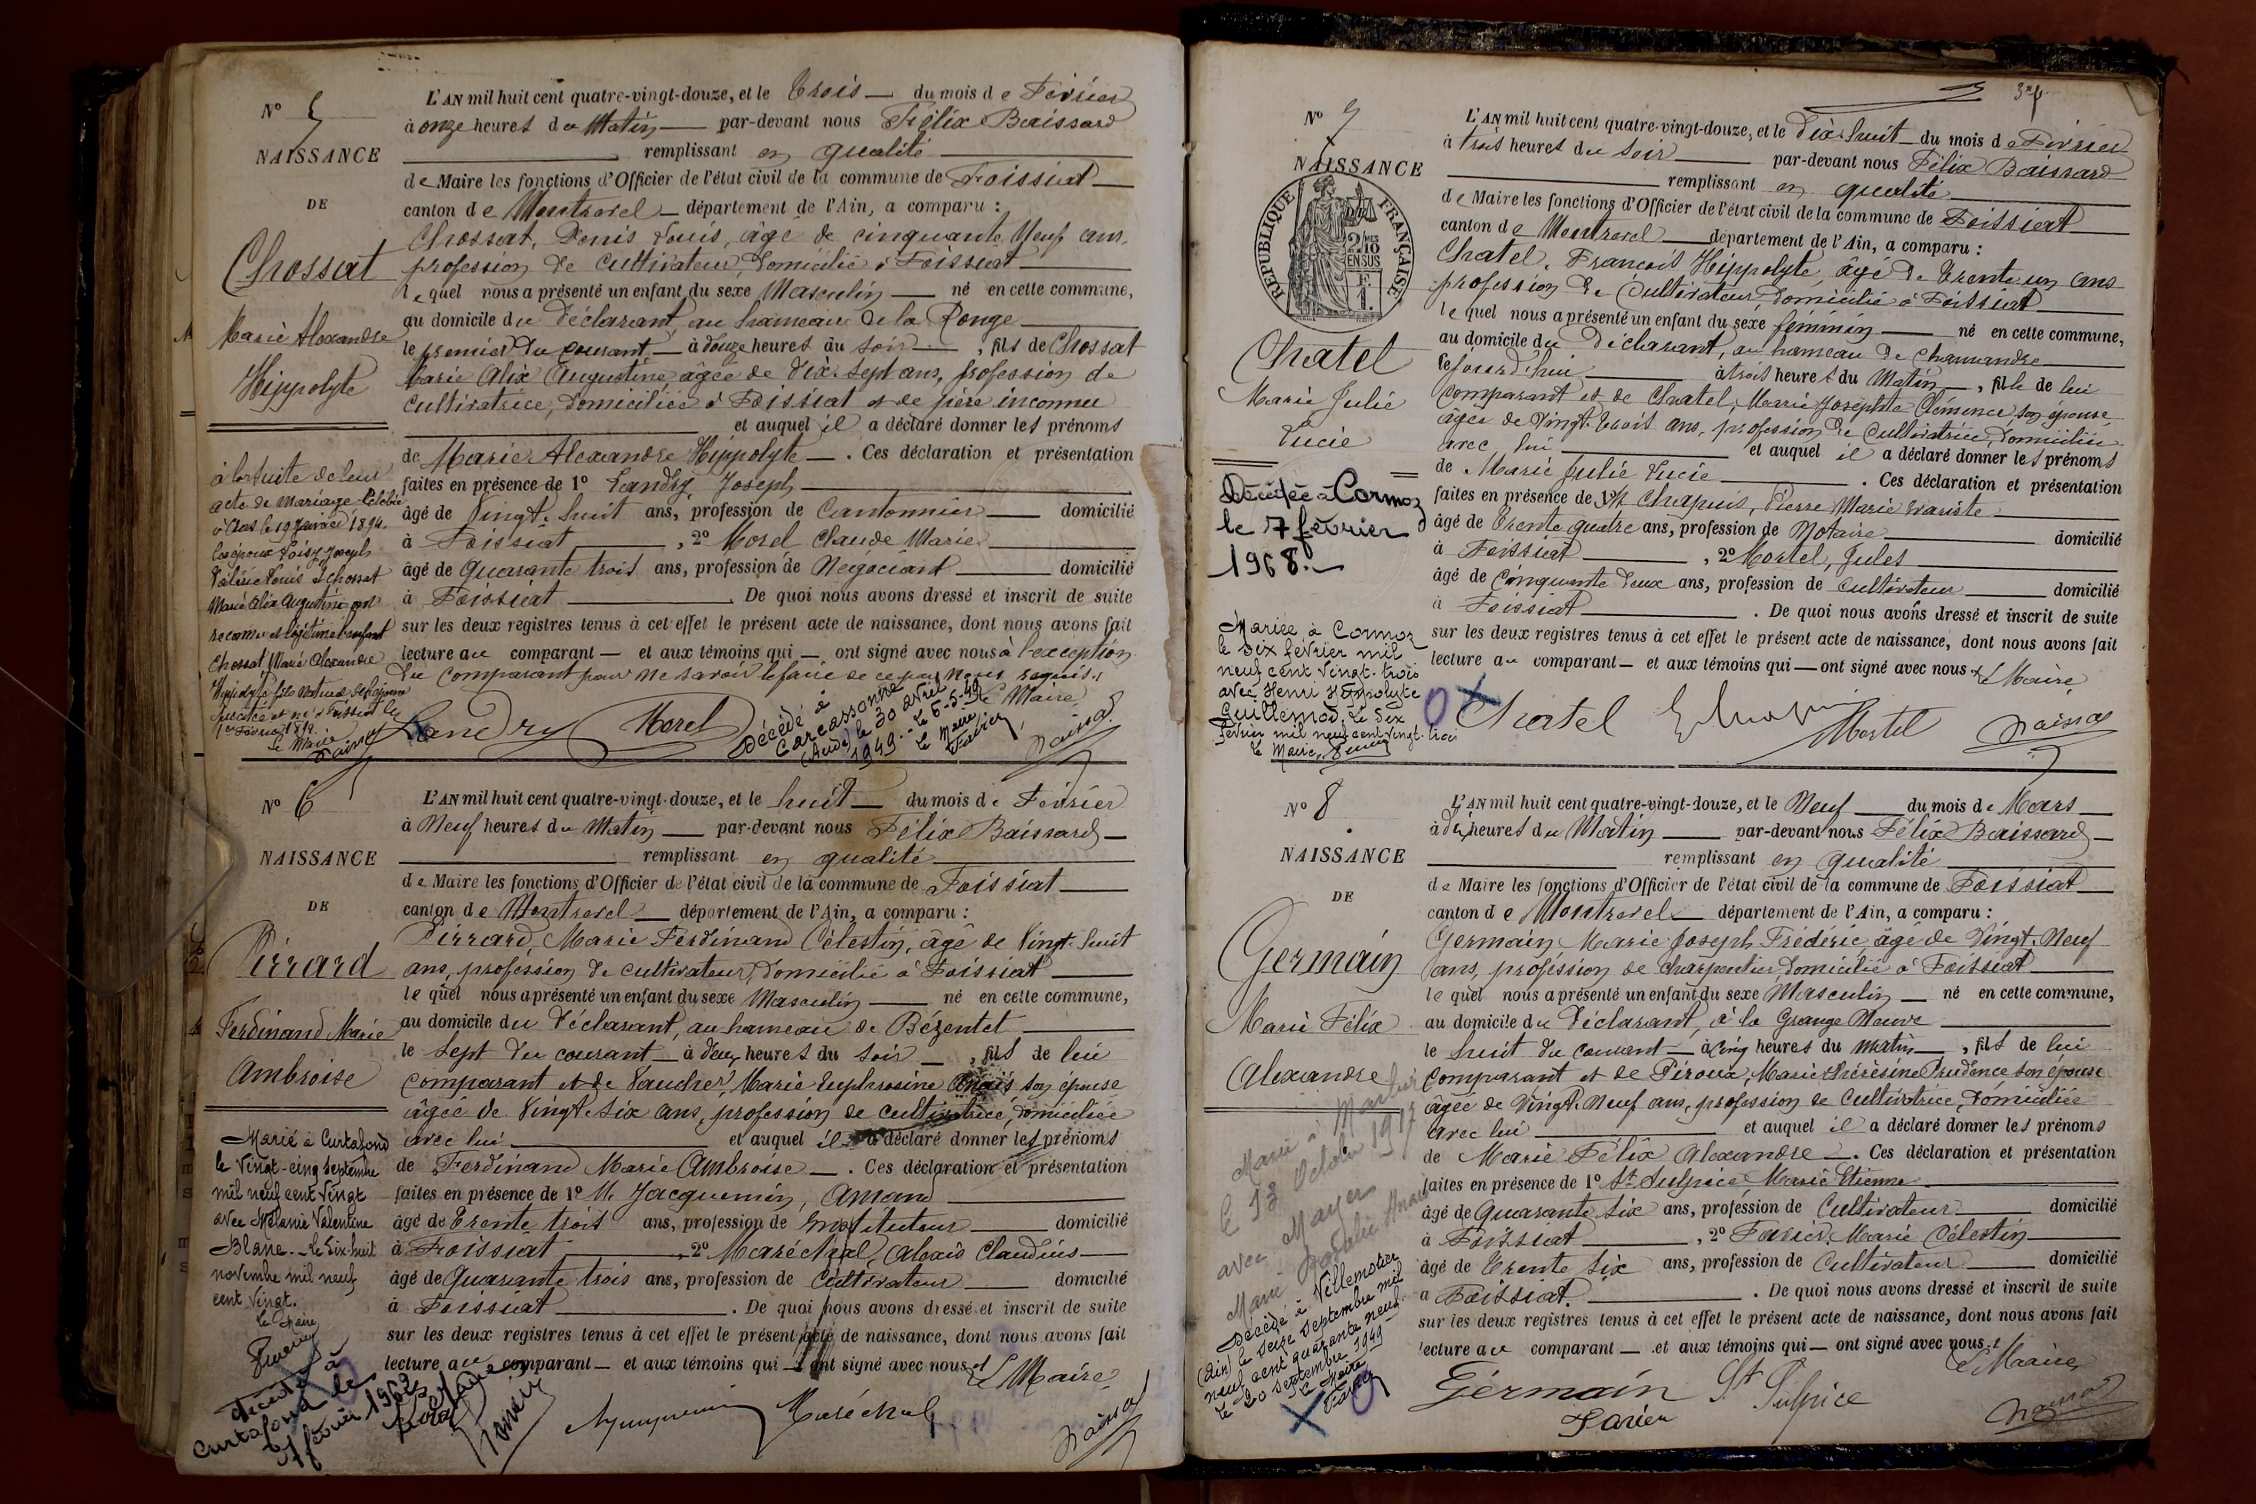 N° 5
NAISSANCE
DE
Chossat
Marie Alexandre
Hippolyte
à la suite de leur
acte de Mariage célébré
le 19 Janvier 1894
les époux Joseph
Louis et Chossat
Marie Alix Augustine ont
reconnu et légitimé l'enfant
Chossat Marie Alexandre
Hippolyte
le Maire
L'AN mil huit cent quatre-vingt-douze, et le Trois du mois de Février
à onze heures du Matin par-devant nous Félix Baissard
remplissant en qualité
de Maire les fonctions d'Officier de l'état civil de la commune de Foissiat
canton de Montrevel département de l'Ain, a comparu :
Chossat, Denis Louis, âgé de cinquante Neuf ans,
profession de Cultivateur, domicilié à Foissiat
lequel nous a présenté un enfant du sexe Masculin né en cette commune,
au domicile du Déclarant, au hameau de la Ronge
le premier du courant à douze heures du soir, fils de Chossat
Marie Alix Augustine, âgée de Dix-sept ans, profession de
Cultivatrice, domiciliée à Foissiat et de père inconnu
et auquel il a déclaré donner les prénoms
de Marie Alexandre Hippolyte. Ces déclaration et présentation
faites en présence de 1° Landry, Joseph
âgé de Vingt-huit ans, profession de Cantonnier domicilié
à Foissiat, 2° Morel Claude Marie
âgé de Quarante trois ans, profession de Négociant domicilié
à Foissiat. De quoi nous avons dressé et inscrit de suite
sur les deux registres tenus à cet effet le présent acte de naissance, dont nous avons fait
lecture au comparant et aux témoins qui ont signé avec nous à l'exception
du comparant pour ne savoir le faire de ce par nous requis.
Le Maire,
Landry Morel
Décédé à
Carcassonne
(Aude) le 30 avril
1949. le 6-5-49
Le Maire
N° 6
NAISSANCE
DE
Pirrard
Ferdinand Marie
Ambroise
Marié à Curtafond
le Vingt-cinq Septembre
mil neuf cent Vingt
avec Mélanie Valentine
Blanc. Le Dix-huit
novembre mil neuf
cent Vingt.
le Maire
Décédé à
Curtafond le
février 1962
L'AN mil huit cent quatre-vingt-douze, et le huit du mois de Février
à Neuf heures du Matin par-devant nous Félix Baissard
remplissant en qualité
de Maire les fonctions d'Officier de l'état civil de la commune de Foissiat
canton de Montrevel département de l'Ain, a comparu :
Pirrard, Marie Ferdinand Célestin, âgé de Vingt-huit
ans, profession de cultivateur, domicilié à Foissiat
lequel nous a présenté un enfant du sexe Masculin né en cette commune,
au domicile du Déclarant, au hameau de Bézentet
le Sept du courant à deux heures du soir, fils de lui
comparant et de Vaucher, Marie Euphrosine Anaïs son épouse
âgée de Vingt-six ans, profession de cultivatrice, domiciliée
avec lui et auquel il a déclaré donner les prénoms
de Ferdinand Marie Ambroise. Ces déclaration et présentation
faites en présence de 1° M. Jacquemin, Amand
âgé de Trente trois ans, profession de Instituteur domicilié
à Foissiat, 2° Maréchal, Alexis Claudius
âgé de Quarante trois ans, profession de Cultivateur domicilié
à Foissiat. De quoi nous avons dressé et inscrit de suite
sur les deux registres tenus à cet effet le présent acte de naissance, dont nous avons fait
lecture au comparant et aux témoins qui ont signé avec nous
Le Maire,
Maréchal
N° 7
NAISSANCE
RÉPUBLIQUE FRANÇAISE
2/10 EN SUS
Chatel
Marie Julie
Lucie
Décédée à Cormoz
le 7 février
1968.
Mariée à Cormoz
le Dix février mil
neuf cent vingt-trois
avec Henri Hippolyte
Guillemod. Le Dix
février mil neuf cent vingt-trois
le Maire,
L'AN mil huit cent quatre-vingt-douze, et le Dix-huit du mois de Février
à trois heures du Soir par-devant nous Félix Baissard
remplissant en qualité
de Maire les fonctions d'Officier de l'état civil de la commune de Foissiat
canton de Montrevel département de l'Ain, a comparu :
Chatel, François Hippolyte, âgé de Trente un ans
profession de Cultivateur, domicilié à Foissiat
lequel nous a présenté un enfant du sexe féminin né en cette commune,
au domicile du Déclarant, au hameau de Chamandre
cejourd'hui à trois heures du Matin, fille de lui
comparant et de Chatel, Marie Josephte Clémence son épouse
âgée de Vingt-trois ans, profession de Cultivatrice, domiciliée
avec lui et auquel il a déclaré donner les prénoms
de Marie Julie Lucie. Ces déclaration et présentation
faites en présence de M. Chapuis, Pierre Marie Evariste
âgé de Trente quatre ans, profession de Notaire domicilié
à Foissiat, 2° Mortel, Jules
âgé de Cinquante deux ans, profession de Cultivateur domicilié
à Foissiat. De quoi nous avons dressé et inscrit de suite
sur les deux registres tenus à cet effet le présent acte de naissance, dont nous avons fait
lecture au comparant et aux témoins qui ont signé avec nous
Le Maire,
Chatel Mortel
N° 8
NAISSANCE
DE
Germain
Marie Félix
Alexandre
Marié à
le 13 Octobre 1917
avec Mayer
Marie
Décédé à Villemotier
(Ain) le seize septembre mil
neuf cent quarante neuf.
Le 20 septembre 1949
Le Maire
L'AN mil huit cent quatre-vingt-douze, et le Neuf du mois de Mars
à dix heures du Matin par-devant nous Félix Baissard
remplissant en qualité
de Maire les fonctions d'Officier de l'état civil de la commune de Foissiat
canton de Montrevel département de l'Ain, a comparu :
Germain Marie Joseph Frédéric, âgé de Vingt-Neuf
ans, profession de charpentier, domicilié à Foissiat
lequel nous a présenté un enfant du sexe Masculin né en cette commune,
au domicile du Déclarant, à la Grange Neuve
le huit du courant à cinq heures du matin, fils de lui
comparant et de Piroux, Marie Thérésine Prudence son épouse
âgée de Vingt-Neuf ans, profession de Cultivatrice, domiciliée
avec lui et auquel il a déclaré donner les prénoms
de Marie Félix Alexandre. Ces déclaration et présentation
faites en présence de 1° St Sulpice Marie Etienne
âgé de Quarante six ans, profession de Cultivateur domicilié
à Foissiat, 2° Favier, Marie Célestin
âgé de Trente six ans, profession de Cultivateur domicilié
à Foissiat. De quoi nous avons dressé et inscrit de suite
sur les deux registres tenus à cet effet le présent acte de naissance, dont nous avons fait
lecture au comparant et aux témoins qui ont signé avec nous.
Le Maire,
Germain St Sulpice
Favier